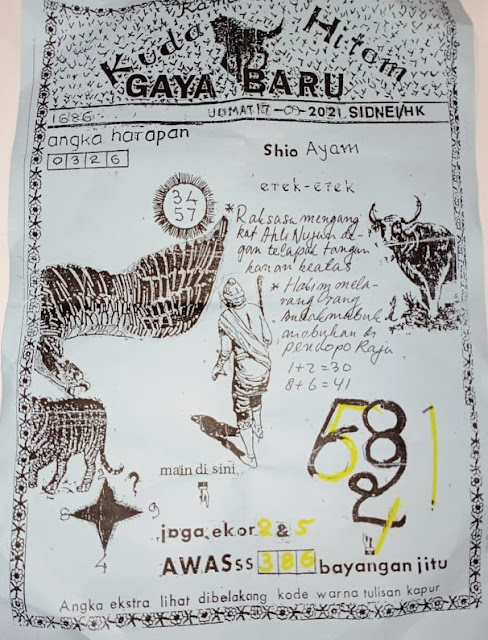 Kuda Hitam
GAYA BARU
1686
JUMAT 17-09-2021 SIDNEI/HK
angka harapan
0 3 2 6
Shio Ayam
erek-erek
34
57
* Raksasa mengang
kat Ahli Nujum de-
gan telapak tangan
kanan keatas
* Hakim mela-
rang orang
mabukan di
pendopo Raja
1+2=30
8+6=41
5 8
2
1
main di sini
?
8 9
4
jaga ekor 2 & 5
AWASss 3 8 6 bayangan jitu
Angka ekstra lihat dibelakang kode warna tulisan kapur